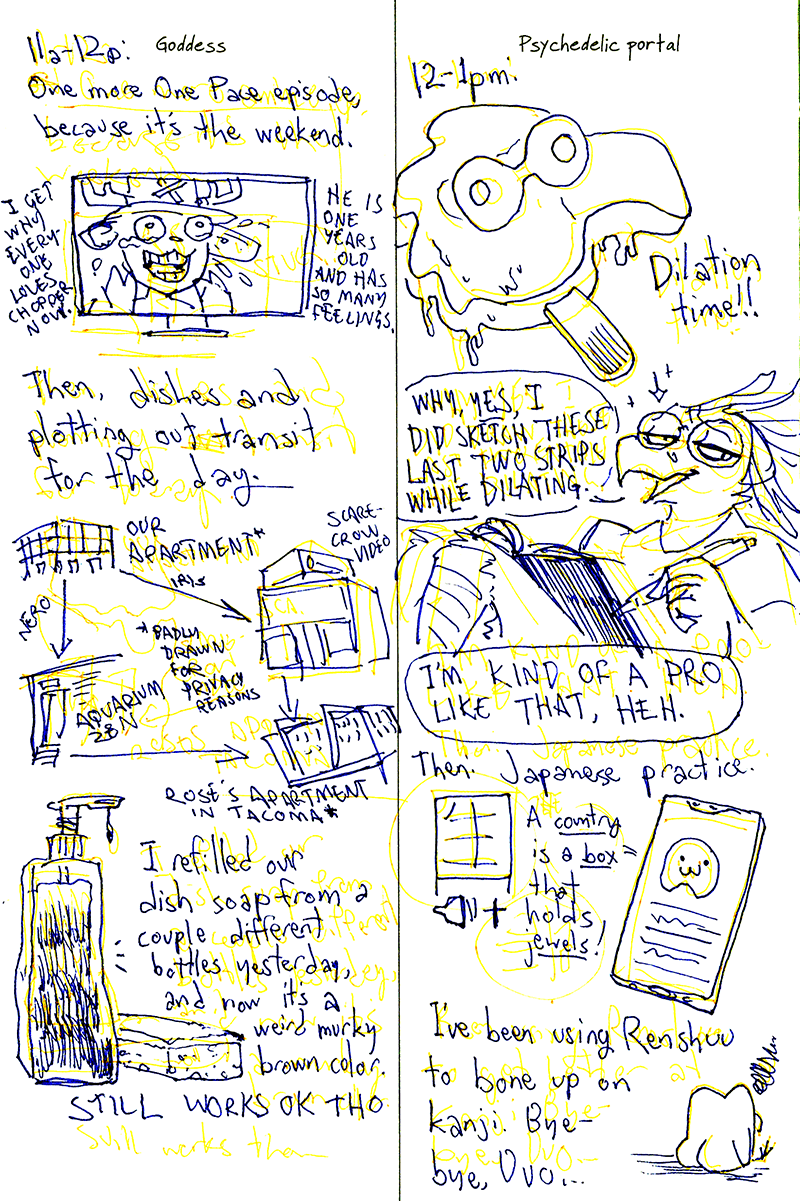 11a-12p:
Goddess
One more One Pace episode,
because it's the weekend.
I GET
WHY
EVERY-
ONE
LOVES
CHOPPER
NOW.
HE IS
ONE
YEARS
OLD
AND HAS
SO MANY
FEELINGS.
Then, dishes and
plotting out transit
for the day.
OUR
APARTMENT*
SCARE-
CROW
VIDEO
NERO
IRIS
*BADLY
DRAWN
FOR
PRIVACY
REASONS
AQUARIUM
ZEN
ROSE'S APARTMENT
IN TACOMA*
I refilled our
dish soap from a
couple different
bottles yesterday,
and now it's a
weird murky
brown color.
STILL WORKS OK THO
Still works
Psychedelic portal
12-1pm:
Dilation
time!!
WHY, YES, I
DID SKETCH THESE
LAST TWO STRIPS
WHILE DILATING.
I'M KIND OF A PRO
LIKE THAT, HEH.
Then: Japanese practice.
A country
is a box
that
holds
jewels!
I've been using Renshuu
to bone up on
kanji. Bye-
bye, Duo...